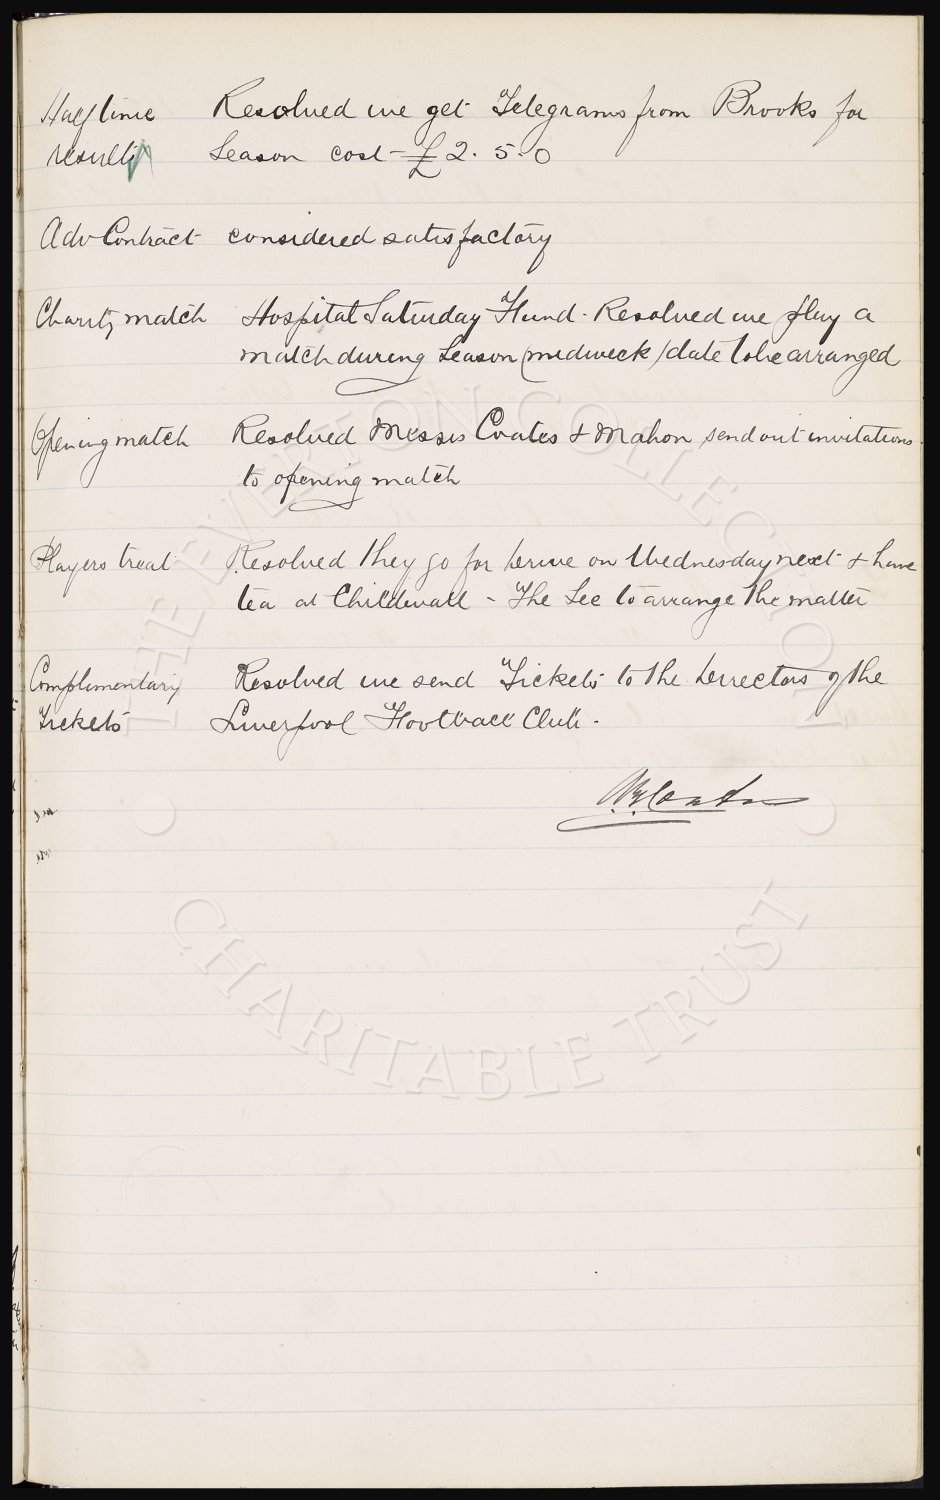 Half time Resolved we get Telegrams from Brooks for
results Season cost - £2.5.0
Adv Contract considered satisfactory
Charity match Hospital Saturday Fund - Resolved we play a
match during Season (midweek) date to be arranged
Opening match Resolved Messrs Coates & Mahon send out invitations
to opening match
Players treat Resolved they go for drive on Wednesday next & have
tea at Childwall - The Sec to arrange the matter
Complimentary Resolved we send Tickets to the Directors of the
Tickets Liverpool Football Club.
Coates
THE EVERTON COLLECTION
CHARITABLE TRUST